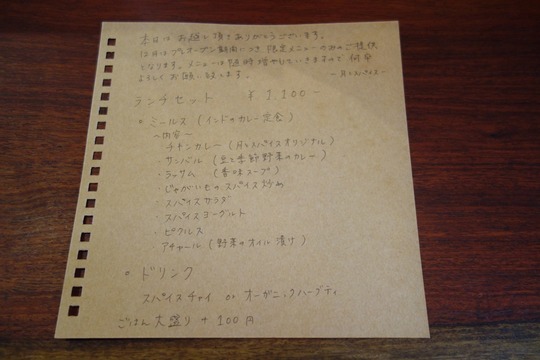 本日は お越し頂きありがとうございます。
12月は プレオープン期間につき 限定メニューのみのご提供
となります。メニューは随時増やしていきますので 何卒
よろしくお願い致します。 ー月とスパイスー
ランチセット ¥1,100-
◦ ミールス (インドのカレー定食)
〜内容〜
・チキンカレー (月とスパイスオリジナル)
・サンバル (豆と季節野菜のカレー)
・ラッサム (香味スープ)
・じゃがいものスパイス炒め
・スパイスサラダ
・スパイスヨーグルト
・ピクルス
・アチャール (野菜のオイル漬け)
◦ ドリンク
スパイスチャイ or オーガニックハーブティ
ごはん大盛り +100円